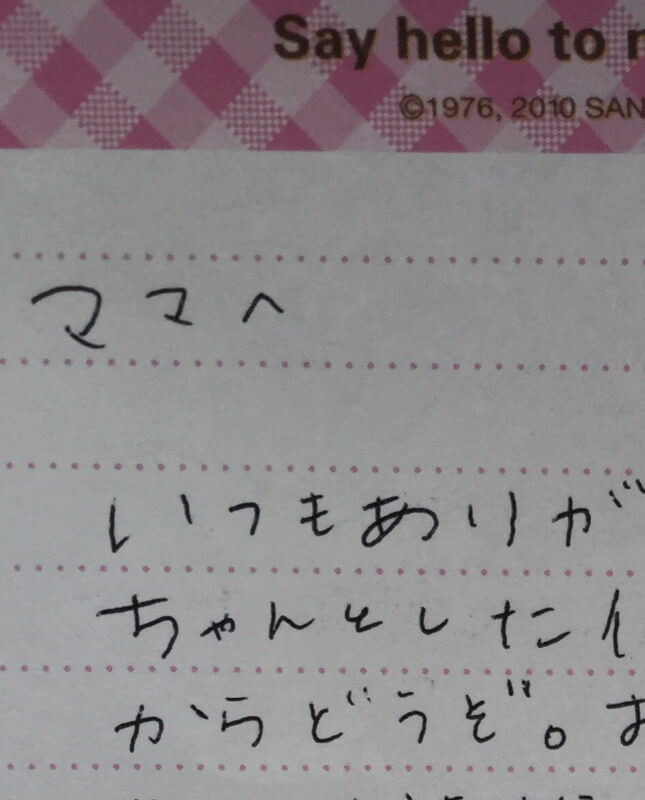 Say hello to
©1976, 2010 SAN
ママへ
いつもありが
ちゃんとした
からどうぞ。